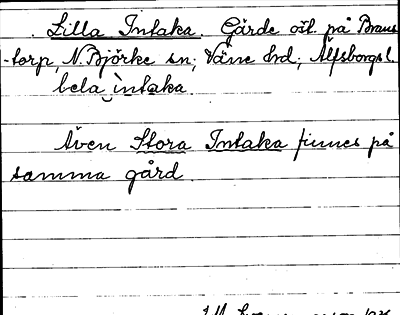 . Lilla Intaka. Gärde öst. på Braus
-torp, N. Björke sn; Väne hd; Älfsborgs l.
bela inta̤ka.
Även Stora Intaka finnes på
samma gård.